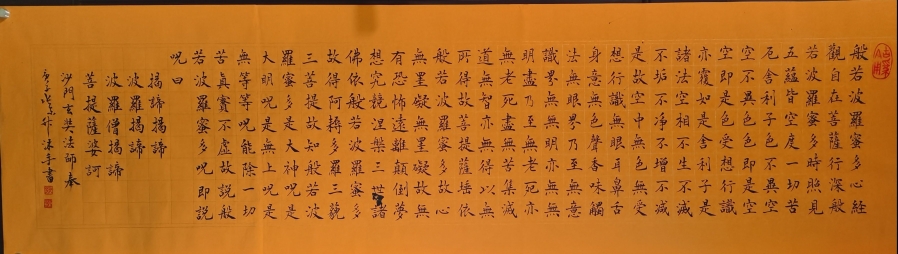 般若波羅蜜多心経
觀自在菩薩行深般
若波羅蜜多時照見
五蘊皆空度一切苦
厄舍利子色不異空
空不異色色即是空
空即是色受想行識
亦復如是舍利子是
諸法空相不生不滅
不垢不淨不增不減
是故空中無色無受
想行識無眼耳鼻舌
身意無色聲香味觸
法無眼界乃至無意
識界無無明亦無無
明盡乃至無老死亦
無老死盡無苦集滅
道無智亦無得以無
所得故菩提薩埵依
般若波羅蜜多故心
無罣礙無罣礙故無
有恐怖遠離顛倒夢
想究竟涅槃三世諸
佛依般若波羅蜜多
故得阿耨多羅三藐
三菩提故知般若波
羅蜜多是大神呪是
大明呪是無上呪是
無等等呪能除一切
苦真實不虛故說般
若波羅蜜多呪即說
呪曰
揭諦揭諦
波羅揭諦
波羅僧揭諦
菩提薩婆訶
沙門玄奘法師奉
沐手書